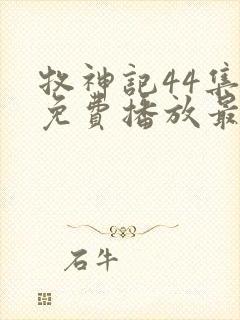 牧神記44集
免費播放最
石牛